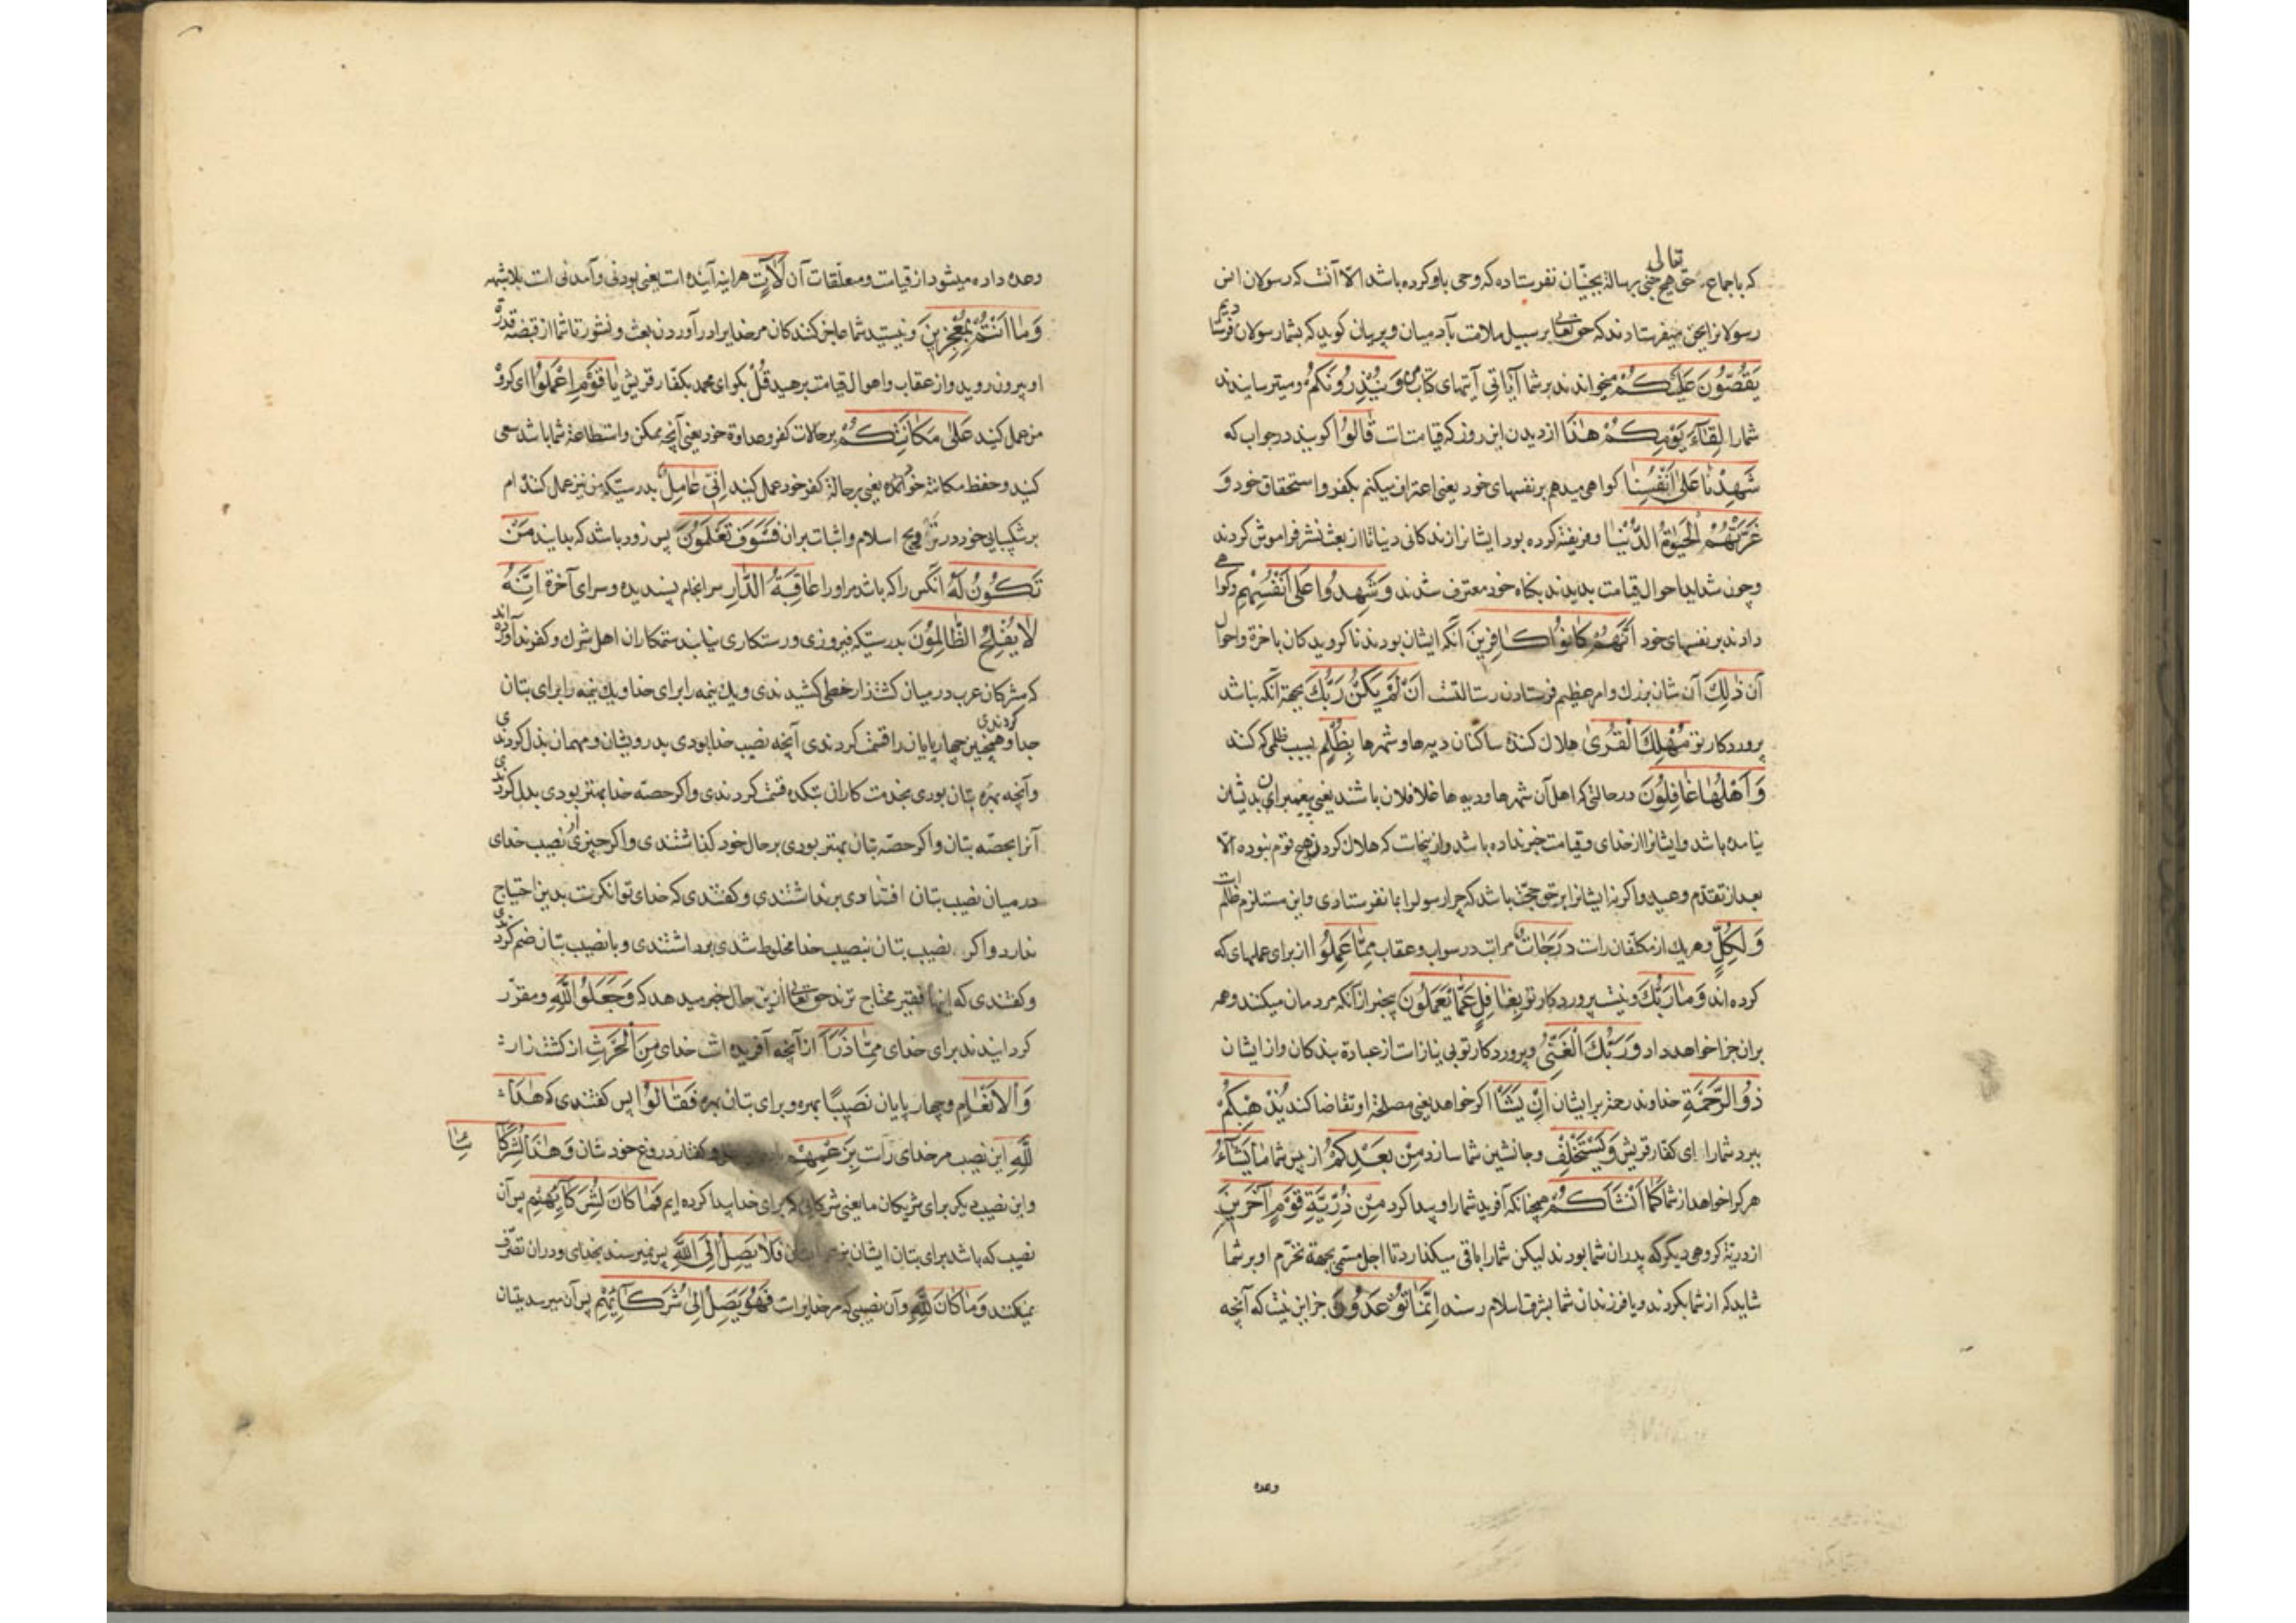 که باجماع حق تعالی هیچ جنی برسالة بجنیان نفرستاده که وحی باو کرده باشد الا آنست که رسولان انس
رسولانرا بجن میفرستادند که حق تعالی بر سبیل ملامت بآدمیان و پریان کوید که بشما رسولان فرستادیم
یَقُصُّونَ عَلَیْكُمْ میخواندند بر شما آیَاتِی آیتهای کتاب من وَیُنْذِرُونَکُمْ و میترسانیدند
شما را لِقَآءَ یَوْمِكُمْ هٰذَا از دیدن این روز که قیامتست قَالُوا کویند در جواب که
شَهِدْنَا عَلٰی اَنْفُسِنَا کواهی میدهم بر نفسهای خود یعنی اعتراف میکنم بکفر و استحقاق خود وَ
غَرَّتْهُمُ الْحَیٰوةُ الدُّنْیَا و فریفته کرده بود ایشانرا زندکانی دنیا تا از بعث نشر فراموش کردند
و چون شداید احوال قیامت بدیدند بکناه خود معترف شدند وَشَهِدُوا عَلٰی اَنْفُسِهِمْ و کواهی
دادند بر نفسهای خود اَنَّهُمْ کَانُوا كَافِرِینَ آنکه ایشان بودند ناکرویدکان باخرة و احوال
آن ذٰلِكَ آن شان بزرك و امر عظیم فرستادن رسالتست اَنْ لَمْ یَکُنْ رَبُّكَ بجهة آنکه نباشد
پروردکار تو مُهْلِكَ الْقُرٰی هلاك کننده ساکنان دیهها و شهرها بِظُلْمٍ بسبب ظلمی که کنند
وَاَهْلُهَا غَافِلُونَ در حالتی که اهل آن شهرها و دیه ها غافلان باشند یعنی پیغمبران بدیشان
نیامده باشد و ایشانرا از خدای و قیامت خبر نداده باشد و از ینجاست که هلاك کردن هیچ قوم نبوده الا
بعد از تقدم وعید و اکر نه ایشانرا بر حق حجت باشد که چرا رسول را بما نفرستادی و این مستلزم ظلم است
وَلِکُلٍّ و هر یك از مکلفان راست دَرَجَاتٌ مراتب در سواب و عقاب مِمَّا عَمِلُوا از برای عملهای که
کرده اند وَمَا رَبُّكَ و نیست پروردکار تو بِغَافِلٍ عَمَّا یَعْمَلُونَ بیخبر از آنکه مردمان میکنند و همه
بر ان جزا خواهد داد وَرَبُّكَ الْغَنِیُّ و پروردکار تو بی نیاز است از عبادة بندکان و از ایشان
ذُو الرَّحْمَةِ خداوند رحمة بر ایشان اِنْ یَشَأْ اکر خواهد یعنی مصلحة او تقاضا کند یُذْهِبْکُمْ
ببرد شما را ای کفار قریش وَیَسْتَخْلِفْ و جانشین شما سازد مِنْ بَعْدِکُمْ از پس شما مَا یَشَآءُ
هر کرا خواهد از شما کَمَا اَنْشَاَكُمْ همچنانکه آفرید شما را و پیدا کرد مِنْ ذُرِّیَّةِ قَوْمٍ اٰخَرِینَ
از دریة کروهی دیکر که پدران شما بودند لیکن شما را باقی میکذارد تا اجل مسمی بجهة تخرم او بر شما
شاید که از شما بکردند و یا فرزندان شما بشرف اسلام رسند اِنَّمَا تُوعَدُونَ جز این نیست که آنچه
وعده
وعده داده میشود از قیامت و معلقات آن لَاٰتٍ هر اینه آینده است یعنی بودنی و آمدنی است بلا شبهه
وَمَا اَنْتُمْ بِمُعْجِزِینَ و نیستید شما عاجز کنندکان مر خدایرا در آوردن بعث و نشور تا شما از قبضه قدرة
او بیرون روید و از عقاب و اهوال قیامت برهید قُلْ بکو ای محمد بکفار قریش یَا قَوْمِ اعْمَلُوا ای کروه
من عمل کنید عَلٰی مَکَانَتِكُمْ بر حالات کفر و عداوة خود یعنی آنچه ممکن و استطاعة شما باشد سعی
کنید و حفظ مکانة خود یعنی بر حالة کفر خود عمل کنید اِنِّی عَامِلٌ بدرستیکه من نیز عمل کننده ام
بر شکیبایی خود و در ترویج اسلام و اثبات بران فَسَوْفَ تَعْلَمُونَ پس زود باشد که بدانید مَنْ
تَكُونُ لَهُ آنکس را که باشد مر او را عَاقِبَةُ الدَّارِ سرانجام پسندیده و سرای آخرة اِنَّهُ
لَا یُفْلِحُ الظَّالِمُونَ بدرستیکه فیروزی و رستکاری نیابند ستمکاران اهل شرك و کفر آورده اند
که مشرکان عرب در میان کشتزار خطی کشیدندی و یك نیمه را برای خدا و یك نیمه را برای بتان
جدا کردندی و همچنین چهار پایان را قسمت کردندی آنچه نصیب خدا بودی بدرویشان و مهمان بذل کردندی
و آنچه بهره بتان بودی بخدمت کاران بتکده قسمت کردندی و اکر حصه خدا بهتر بودی بدل کردندی
آنرا بحصه بتان و اکر حصه بتان بهتر بودی بر حال خود کذاشتندی و اکر چیزی از نصیب خدای
در میان نصیب بتان افتادی برنداشتندی و کفتندی که خدای توانکرست بدین احتیاج
ندارد و اکر نصیب بتان بنصیب خدا مخلوط شدی برداشتندی و با نصیب بتان ضم کردندی
و کفتندی که اینها فقیر محتاج ترند حق تعالی از ین حال خبر میدهد که وَجَعَلُوا لِلّٰهِ و مقرر
کردانیدند برای خدای مِمَّا ذَرَاَ از آنچه آفریده است خدای مِنَ الْحَرْثِ از کشتزار
وَالْاَنْعَامِ و چهار پایان نَصِیبًا بهره و برای بتان بهره فَقَالُوا پس کفتندی که هٰذَا
لِلّٰهِ این نصیب مر خدای راست بِزَعْمِهِمْ و کفتار دروغ خود شان وَهٰذَا لِشُرَکَا
ئِنَا
و این نصیب دیکر برای شریکان ما یعنی شرکایی که برای خدا پیدا کرده ایم فَمَا کَانَ لِشُرَکَآئِهِمْ پس آن
نصیب که باشد برای بتان ایشان فَلَا یَصِلُ اِلَی اللّٰهِ پس نمیرسد بخدای و در ان تصرف
نمیکند وَمَا کَانَ لِلّٰهِ و آن نصیبی که مر خدایراست فَهُوَ یَصِلُ اِلٰی شُرَكَآئِهِمْ پس آن میرسد ببتان